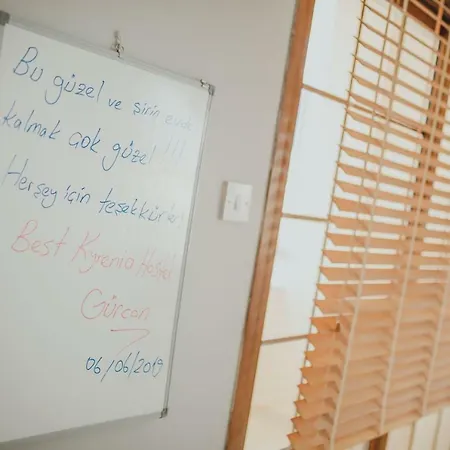 Bu güzel ve şirin evde
kalmak çok güzel!!!
Herşey için teşekkürler
Best Kyrenia Hostel
Gürcan
06/06/2019